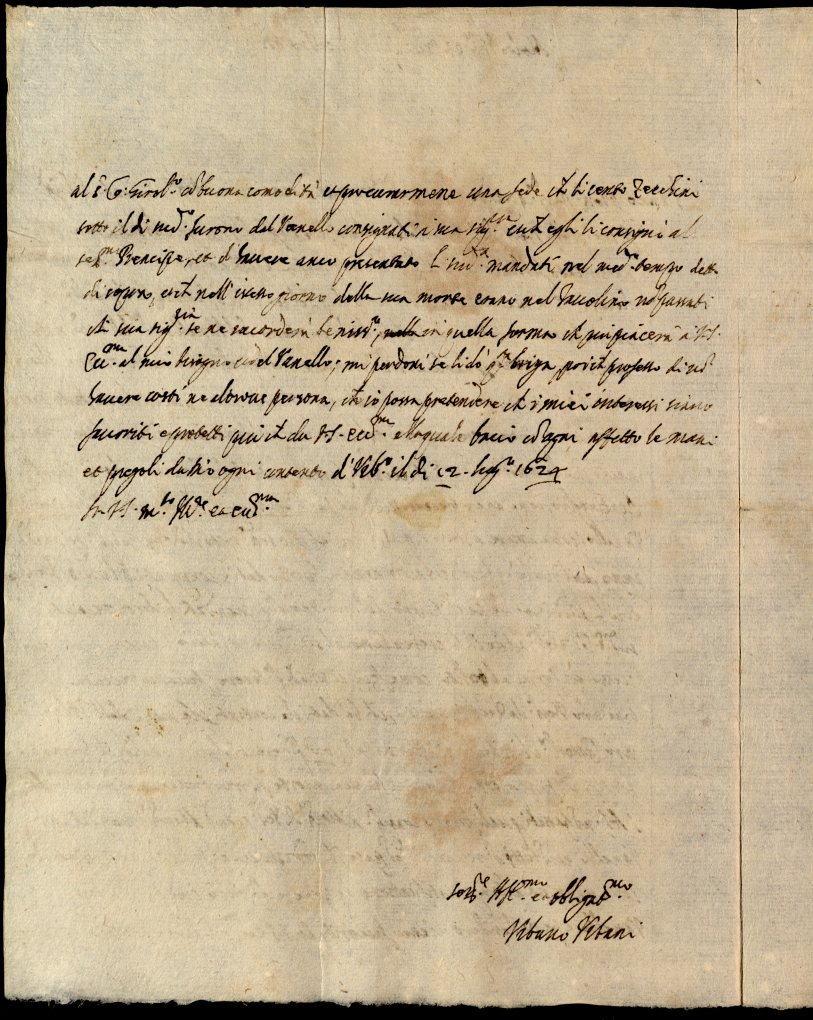 al S. G. Girol.º cõ buona comodità et procurarmene una fede ch li cento Zecchini
sotto il di med.º furono dal Vanello consignati à sua sig.ria cħ egli li consigni al
ser.mo Prencipe, et d'havere anco presentato l mandati nel med.º tempo
di, et ch nell' istesso giorno della sua morte erano nel tavolino
ch sua sig.ria se ne raccorderà beniss.º, in quella forma ch più piacerà à V.S.
Ecc.ma al mio bisogno del Vanello; mi perdoni se li dò q.ta briga, poich professo di nõ
havere costì ne altrove persona, ch io possa pretendere ch i miei interessi siano
favoriti e protetti più ch da V.S. ecc.ma alla quale bacio cõ ogni affetto le mani
et pregoli da Dio ogni contento d'Urb.º il di 12. lug.º 1624
Di V.S. m.to Ill.re et ecc.ma
ser.re Aff.mo et obligat.mo
Urbano Urbani